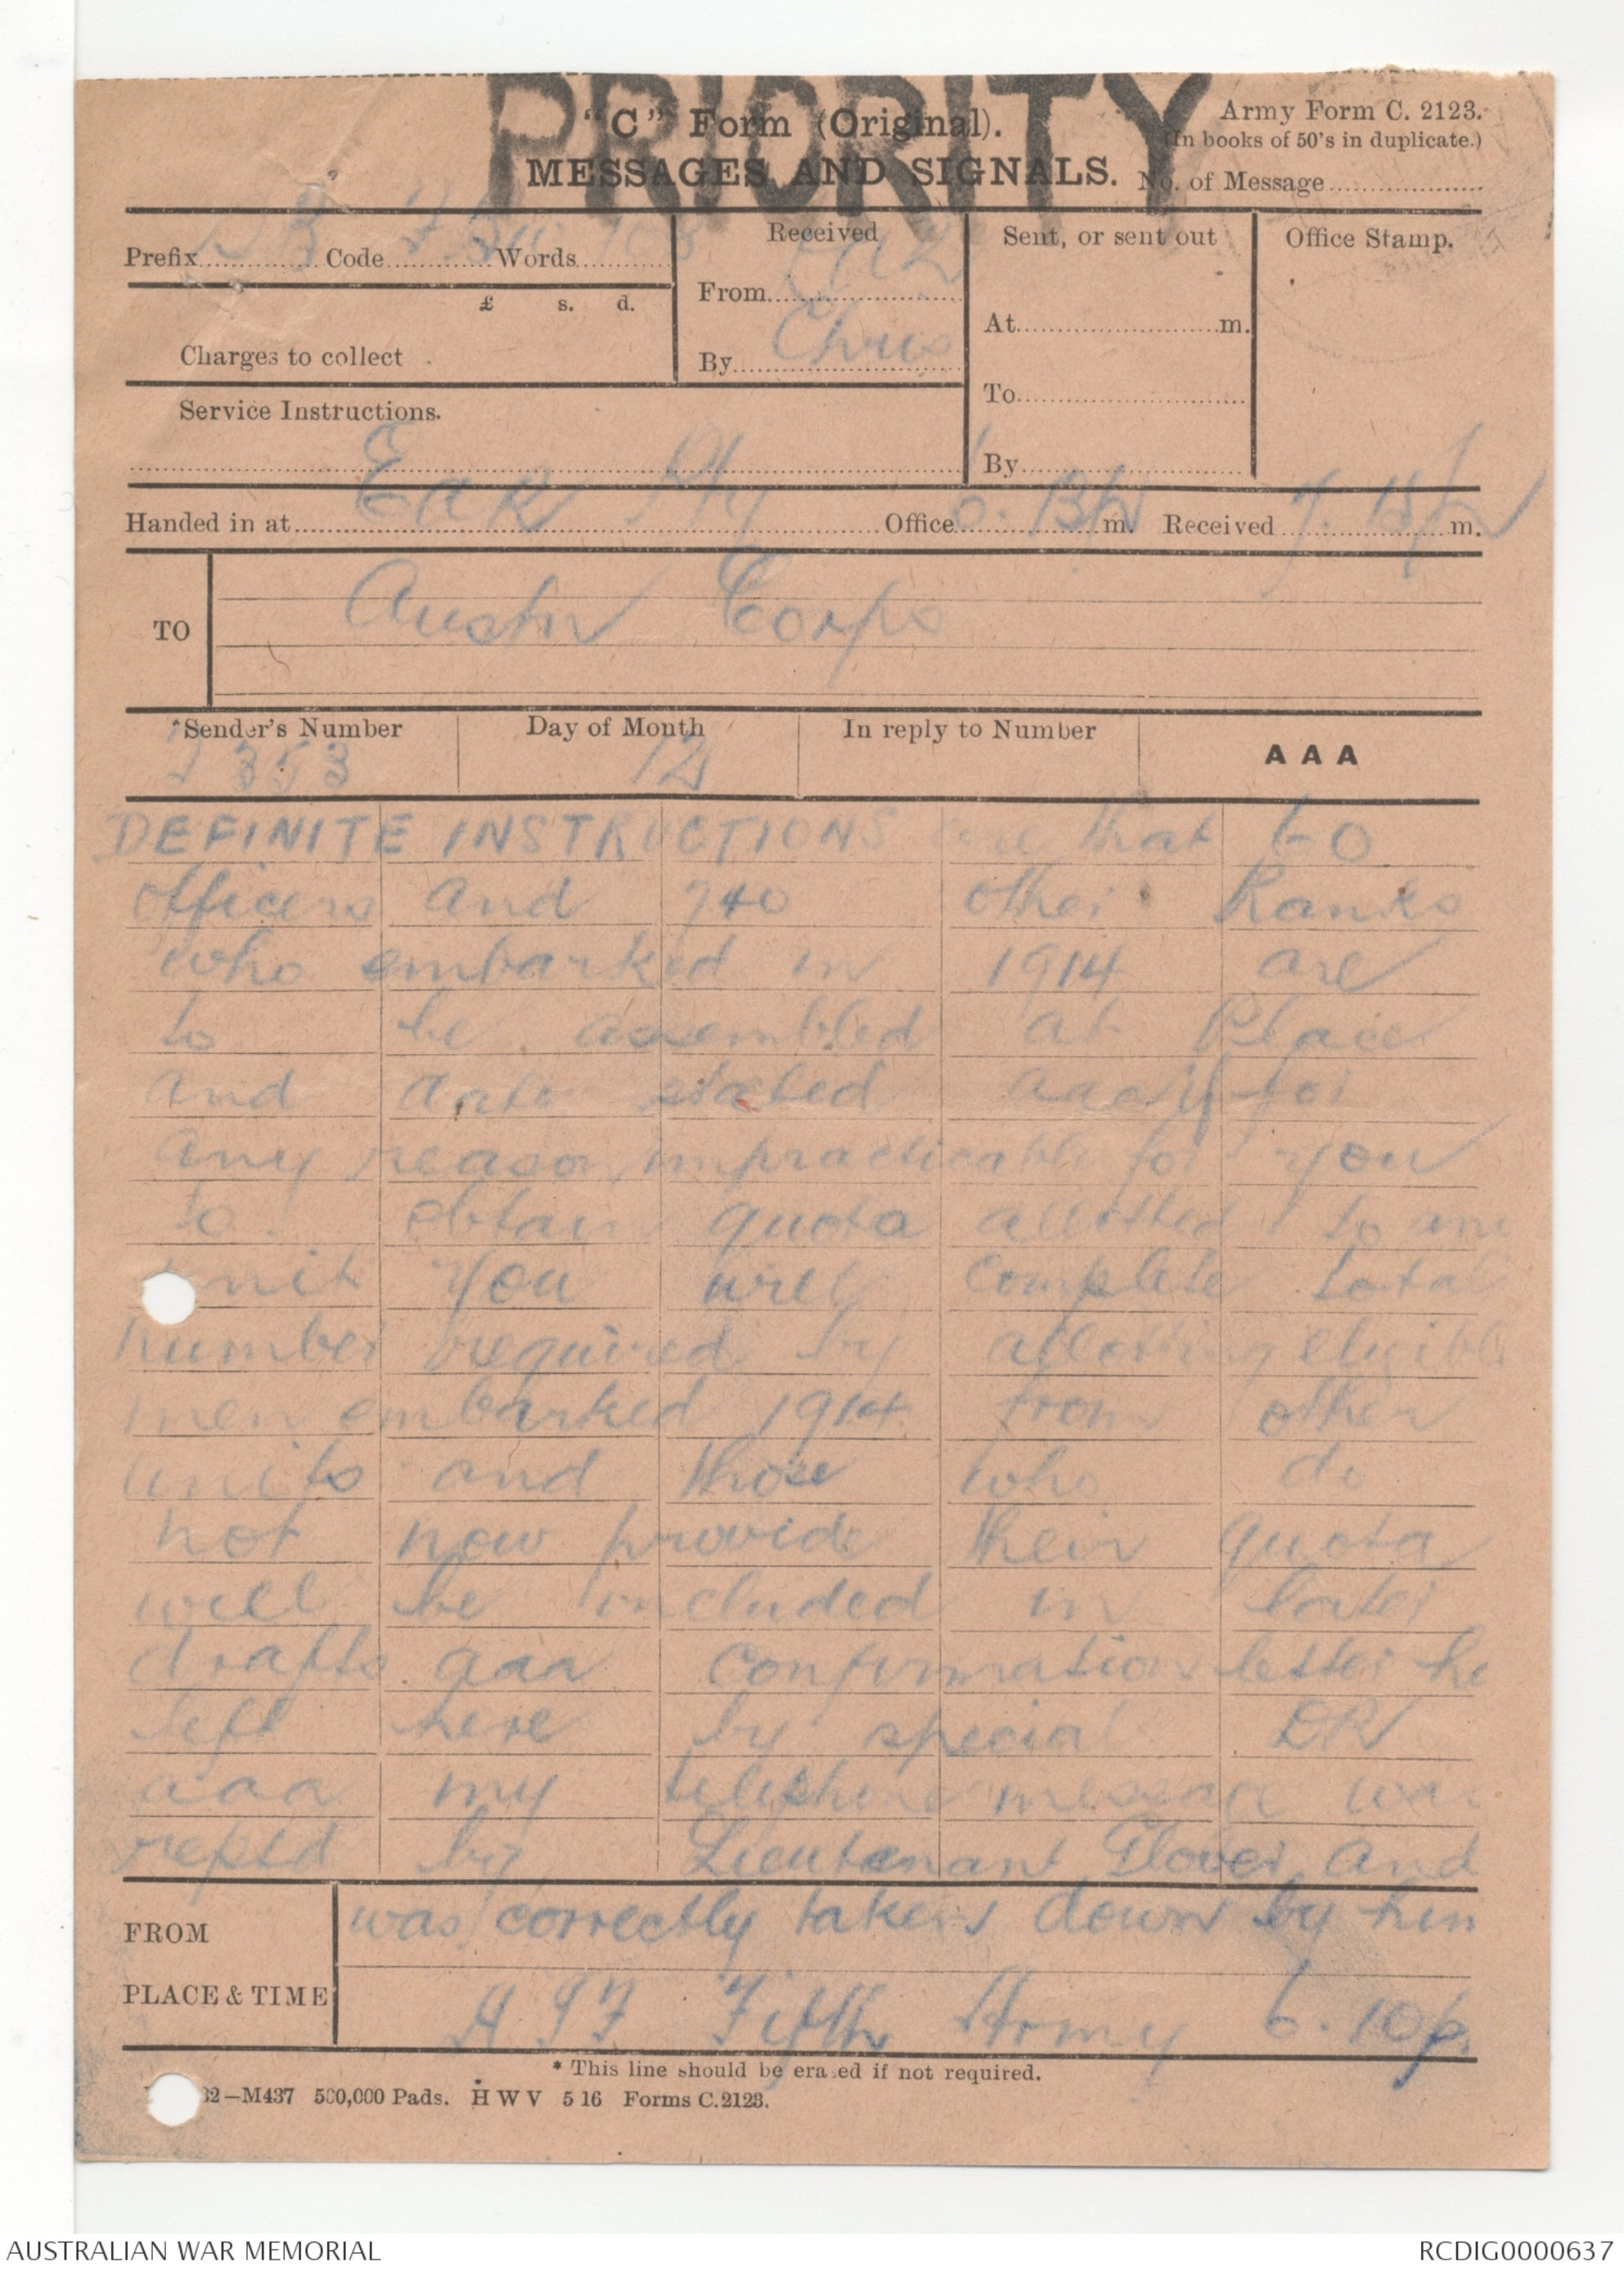 PRIORITY
"C" Form (Original).
Army Form C. 2123.
(In books of 50's in duplicate.)
MESSAGES AND SIGNALS.
No. of Message
Prefix Code Words
Received
From
By Chris
Sent, or sent out
At m.
To
By
Office Stamp.
£ s. d.
Charges to collect
Service Instructions.
Handed in at Office m. Received m.
TO Austn Corps
*Sender's Number
Day of Month 12
In reply to Number
AAA
DEFINITE INSTRUCTIONS are that 60
officers and 740 other Ranks
who embarked in 1914 are
to be assembled at Place
and date stated aaa if for
any reason impracticable for you
to obtain quota allotted to any
unit you will complete total
number required by allotting eligible
men embarked 1914 from other
units and those who do
not now provide their quota
will be included in later
drafts aaa confirmation letter
left here by special DR
aaa my telephone message was
reptd by Lieutenant Glover and
was correctly taken down by him
FROM
PLACE & TIME
Fifth Army 6.10p.
* This line should be erased if not required.
32—M437 500,000 Pads. H W V 5 16 Forms C.2123.
AUSTRALIAN WAR MEMORIAL
RCDIG0000637